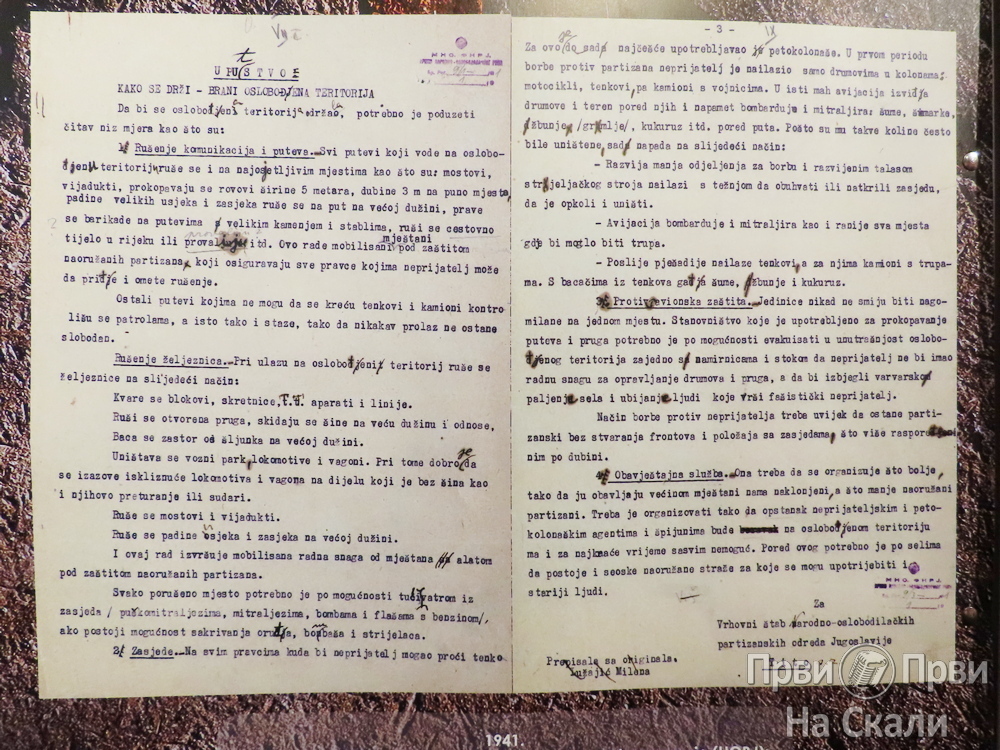 UPUTSTVO
KAKO SE DRŽI - BRANI OSLOBODJENA TERITORIJA
Da bi se oslobodjena teritorija održala, potrebno je poduzeti
čitav niz mjera kao što su:
1/ Rušenje komunikacija i puteva.- Svi putevi koji vode na oslobo-
djenu teritoriju ruše se i na najosetljivim mjestima kao što su: mostovi,
vijadukti, prokopavaju se rovovi širine 5 metara, dubine 3 m na puno mjesta,
padine velikih usjeka i zasjeka ruše se na put na većoj dužini, prave
se barikade na putevima velikim kamenjem i stablima, ruši se cestovno
tijelo u rijeku ili itd. Ovo rade mobilisani mještani pod zaštitom
naoružanih partizana, koji osiguravaju sve pravce kojima neprijatelj može
da pridje i omete rušenje.
Ostali putevi kojima ne mogu da se kreću tenkovi i kamioni kontro
lišu se patrolama, a isto tako i staze, tako da nikakav prolaz ne ostane
slobodan.
Rušenje željeznica.- Pri ulazu na oslobodjeni teritorij ruše se
željeznice na slijedeći način:
Kvare se blokovi, skretnice, T.T. aparati i linije.
Ruši se otvorena pruga, skidaju se šine na veću dužinu i odnose,
Baca se zastor od šljunka na većoj dužini.
Uništava se vozni park, lokomotive i vagoni. Pri tome dobro je da
se izazove iskliznuće lokomotiva i vagona na dijelu koji je bez šina kao
i njihovo preturanje ili sudari.
Ruše se mostovi i vijadukti.
Ruše se padine usjeka i zasjeka na većoj dužini.
I ovaj rad izvršuje mobilisana radna snaga od mještana alatom
pod zaštitom naoružanih partizana.
Svako porušeno mjesto potrebno je po mogućnosti tući vatrom iz
zasjeda / puškomitraljezima, mitraljezima, bombama i flašama s benzinom/,
ako postoji mogućnost sakrivanja orudja, bombaša i strijelaca.
2/ Zasjede.- Na svim pravcima kuda bi neprijatelj mogao proći tenko
Prepisala sa originala.
Lušajić Milena
- 3 -
Za ovo je do sada najčešće upotrebljavao petokolonaše. U prvom periodu
borbe protiv partizana neprijatelj je nailazio samo drumovima u kolonama,
motocikli, tenkovi, pa kamioni s vojnicima. U isti mah avijacija izvidja
drumove i teren pored njih i napamet bombarduje i mitraljira; šume, šumarke,
džbunje /grmlje/, kukuruz itd. pored puta. Pošto su mu takve koline često
bile uništene, sad napada na slijedeći način:
- Razvija manja odjeljenja za borbu i razvijenim talasom
streljačkog stroja nailazi s težnjom da obuhvati ili natkrili zasjedu,
da je opkoli i uništi.
- Avijacija bombarduje i mitraljira kao i ranije sva mjesta
gdje bi moglo biti trupa.
- Poslije pješadije nailaze tenkovi, a za njima kamioni s trupa-
ma. S bacačima iz tenkova gadja šume, džbunje i kukuruz.
3/ Protivavionska zaštita.- Jedinice nikad ne smiju biti nago-
milane na jednom mjestu. Stanovništvo koje je upotrebljeno za prokopavanje
puteva i pruga potrebno je po mogućnosti evakuisati u unutrašnjost oslobo-
djenog teritorija zajedno s namirnicama i stokom da neprijatelj ne bi imao
radnu snagu za opravljanje drumova i pruga, a da bi izbjegli varvarsko
paljenje sela i ubijanje ljudi koje vrši fašistički neprijatelj.
Način borbe protiv neprijatelja treba uvijek da ostane parti-
zanski bez stvaranja frontova i položaja sa zasjedama, što više raspoređe
nim po dubini.
4/ Obavještajna služba.- Ona treba da se organizuje što bolje,
tako da ju obavljaju većinom mještani nama naklonjeni, a što manje naoružani
partizani. Treba je organizovati tako da opstanak neprijateljskim i peto-
kolonaškim agentima i špijunima bude na oslobodjenom teritoriju
ma i za najkraće vrijeme sasvim nemoguć. Pored ovog potrebno je po selima
da postoje i seoske naoružane straže za koje se mogu upotrijebiti i
stariji ljudi.
Za
Vrhovni štab Narodno-oslobodilačkih
partizanskih odreda Jugoslavije
1941.
Први Први
На Скали